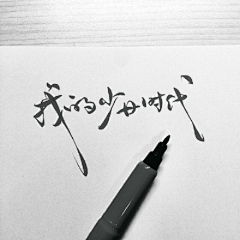 我的少女时代